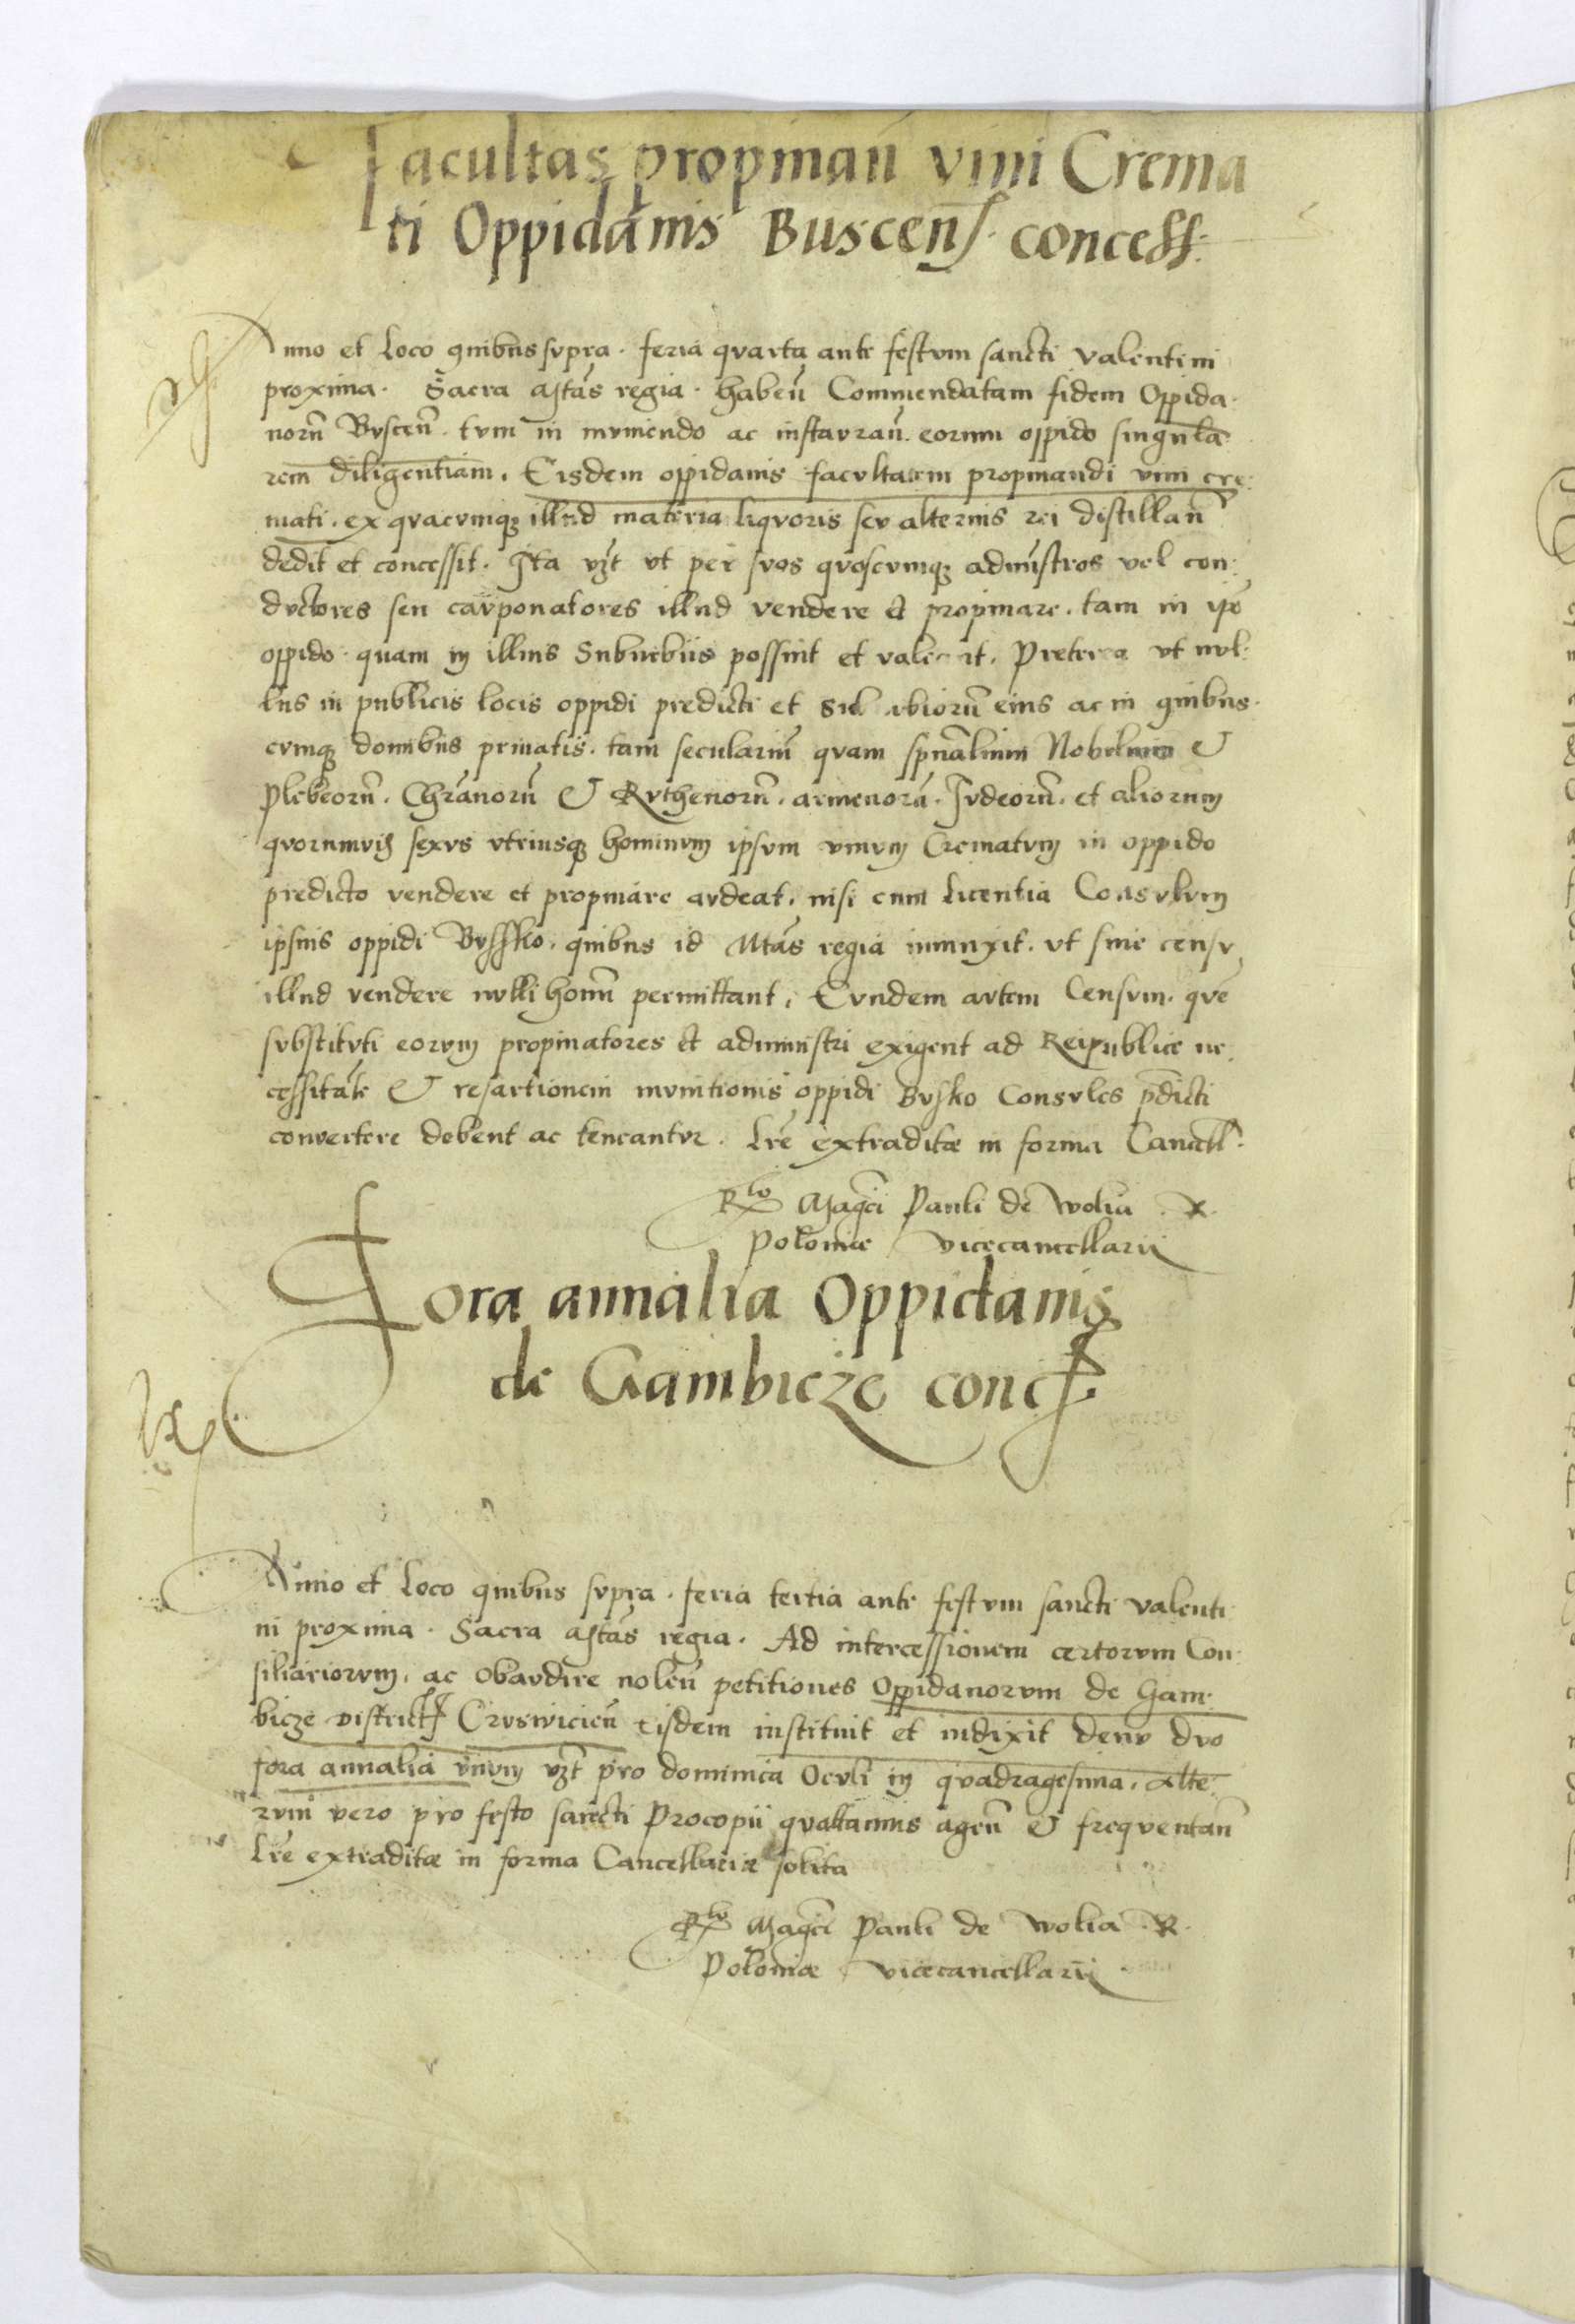 Facultas propinan̄ vini Crema
ti Oppidanis Buscen̄ſ. concess.
Anno et Loco quibus supra. feria quarta ante festum sancti Valentini
proxima. Sacra Mtas regia. haben̄ Commendatam fidem Oppida-
norū Buscen̄. tum in muniendo ac instauran̄. eorum oppido singula-
rem diligentiam. Eisdem oppidanis facultatem propinandi vini cre-
mati. ex quacumqȝ illud materia liquoris seu alterius rei distillan̄
dedit et concessit. Ita vȝt vt per suos quoscumqȝ administros vel con-
ductores seu cauponatores illud vendere et propinare. tam in ipō
oppido quam in illius Suburbiis possint et valeant. Preterea vt nul-
lus in publicis locis oppidi predicti et Suburbiorū eius ac in quibus-
cumqȝ domibus priuatis. tam seculariū quam spūalium Nobilium &
Plebeorū. Chrānorū & Ruthenorū. armenorū. Iudeorū. et aliorum
quorumuis sexus vtriusqȝ hominum ipsum vinum Crematum in oppido
predicto vendere et propinare audeat. nisi cum licentia Consulum
ipsius oppidi Bussko. quibus id Mtas regia iniunxit. vt sine censu
illud vendere nulli homī permittant. Eundem autem Censum. quē
substituti eorum propinatores et administri exigent ad Reipublice ne-
cessitatē & resartionem munitionis oppidi Busko Consules p̄dicti
conuertere debent ac teneantur. Lrē extraditæ in forma Cancell.
Rlo Magci Pauli de Wolia R.
Poloniæ Vicecancellarii
Fora annalia Oppidanis
de Gambicze conc̄ſ.
Anno et Loco quibus supra. feria tertia ante festum sancti Valenti
ni proxima. Sacra Mtas regia. Ad intercessionem certorum Con-
siliariorum. ac obaudire nolen̄ petitiones Oppidanorum de Gam-
bicze district Crusvicien̄ eisdem instituit et indixit denuo duo
fora annalia vnum vȝt pro dominica Oculi in quadragesima. alte-
rum vero pro festo sancti Procopii quottannis agen̄ & frequentan̄
Lrē extraditæ in forma Cancellariæ solita
Rlo Magci Pauli de Wolia R.
Poloniæ Vicecancellarii